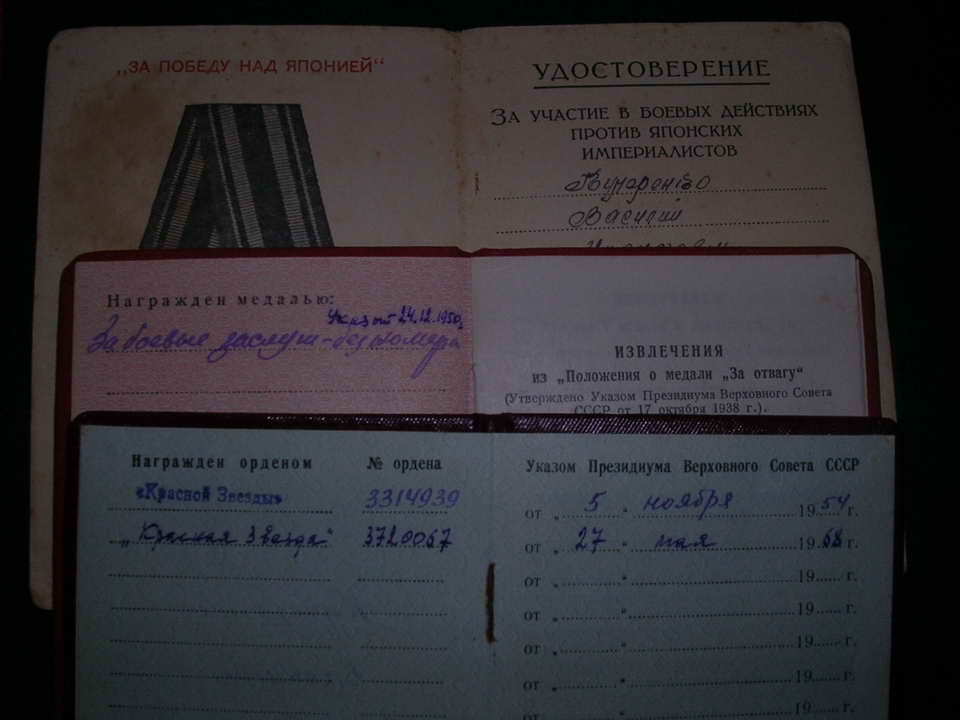 „ЗА ПОБЕДУ НАД ЯПОНИЕЙ“
УДОСТОВЕРЕНИЕ
ЗА УЧАСТИЕ В БОЕВЫХ ДЕЙСТВИЯХ
ПРОТИВ ЯПОНСКИХ
ИМПЕРИАЛИСТОВ
Василий
Награжден медалью:
Указ от 24.12.1950г
За боевые заслуги - без номера
ИЗВЛЕЧЕНИЯ
из „Положения о медали „За отвагу“
(Утверждено Указом Президиума Верховного Совета
СССР от 17 октября 1938 г.).
Награжден орденом № ордена
«Красной Звезды» 3314939
„Красная Звезда“ 3720067
Указом Президиума Верховного Совета СССР
от „ 5 “ ноября 1954 г.
от „ 27 “ мая 1968 г.
от „ “ 19 г.
от „ “ 19 г.
от „ “ 19 г.
от „ “ 19 г.
от „ “ 19 г.